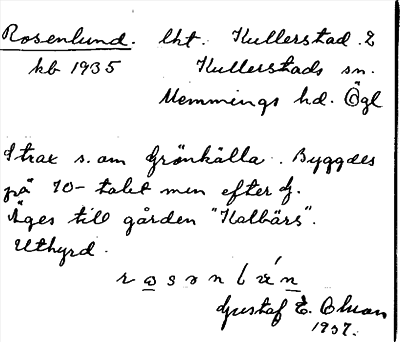 Rosenlund. lht. Kullerstad. 2
kb 1935 Kullerstads sn.
Memmings hd. Ögl
Strax s. om Grönkälla. Byggdes
på 70-talet men efter G.
Äges till gården "Kalbärs".
Uthyrd.
Gustaf E. Olson
1937.